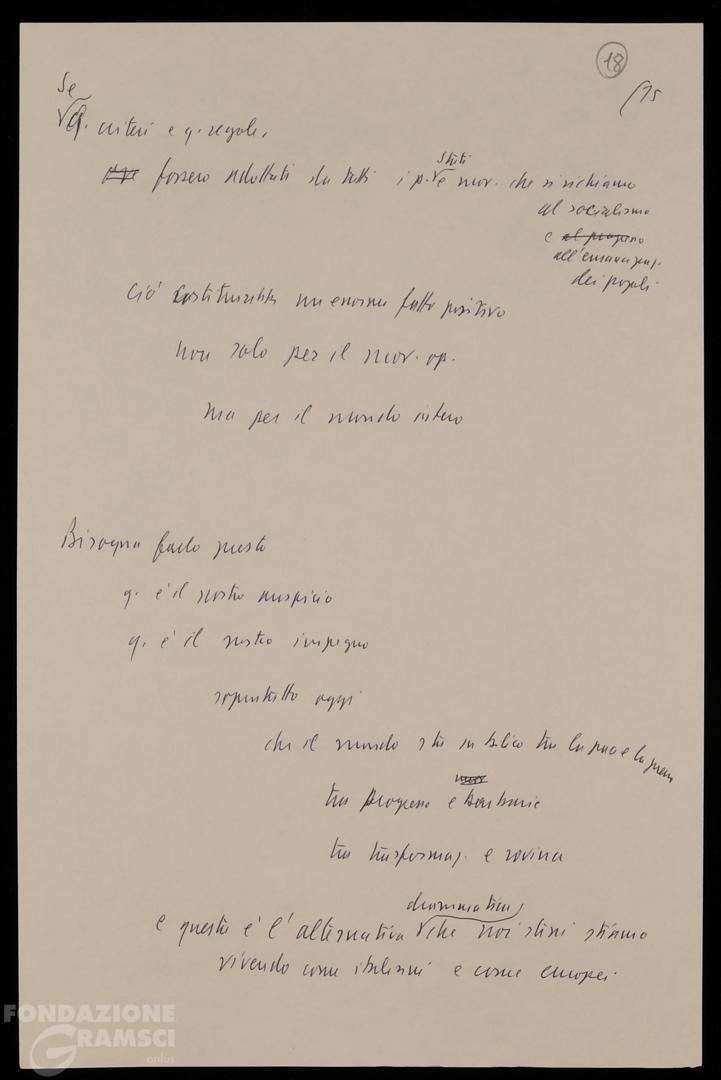 18
/15
Se
q. criteri e q. regole,
fossero adottati da tutti i p. e mov. che si richiamo
Stati
al socialismo
e al progresso
all'emancipaz.
dei popoli.
Ciò costituirebbe un enorme fatto positivo
non solo per il mov. op.
ma per il mondo intero
Bisogna farlo questo
q. è il nostro auspicio
q. è il nostro impegno
soprattutto oggi
che il mondo sta in bilico tra la pace e la guerra
tra progresso e barbarie
tra trasformaz. e rovina
drammatica,
e questa è l'alternativa che noi stessi stiamo
vivendo come italiani e come europei.
FONDAZIONE
GRAMSCI
onlus